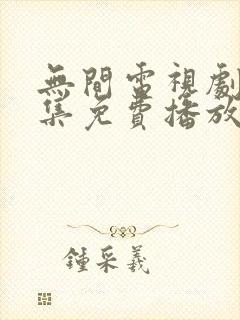 無間電視劇
集免費播放
鍾采羲